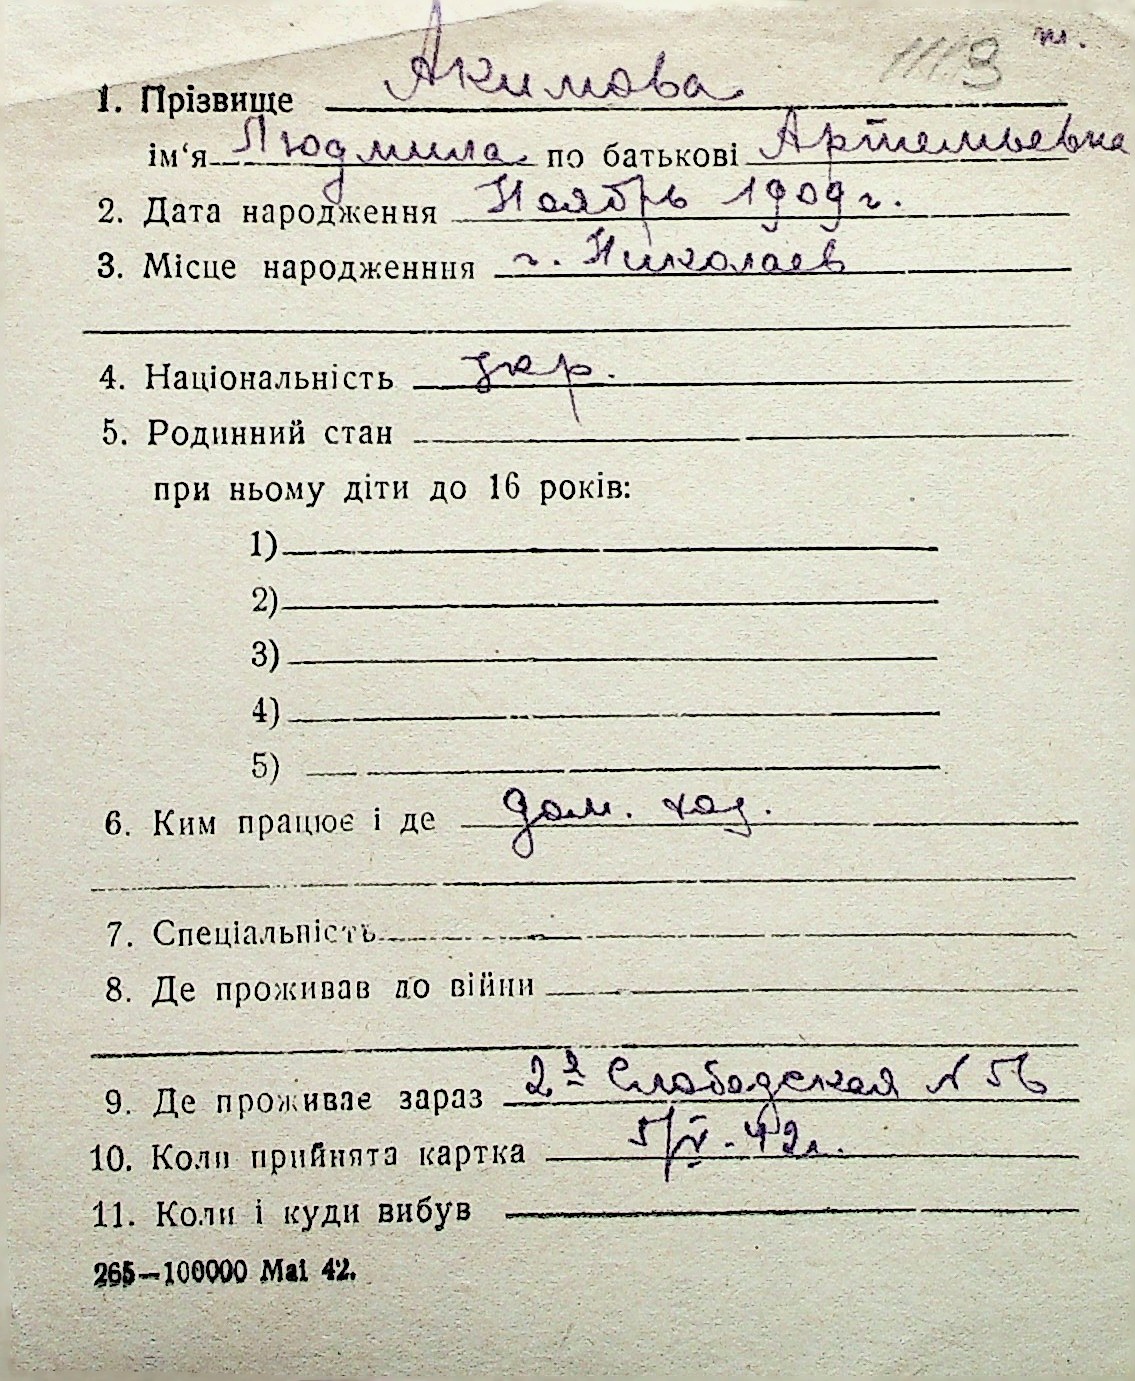 1. Прізвище Акимова
ім‘я Людмила по батькові Артемьевна
2. Дата народження Ноябрь 1909 г.
3. Місце народженння г. Николаев
4. Національність укр.
5. Родинний стан
при ньому діти до 16 років:
1)
2)
3)
4)
5)
6. Ким працює і де дом. хоз.
7. Спеціальність
8. Де проживав до війни
9. Де проживає зараз 2я Слободская N 56
10. Коли прийнята картка 5/V-42 г.
11. Коли і куди вибув
265—100000 Mai 42.